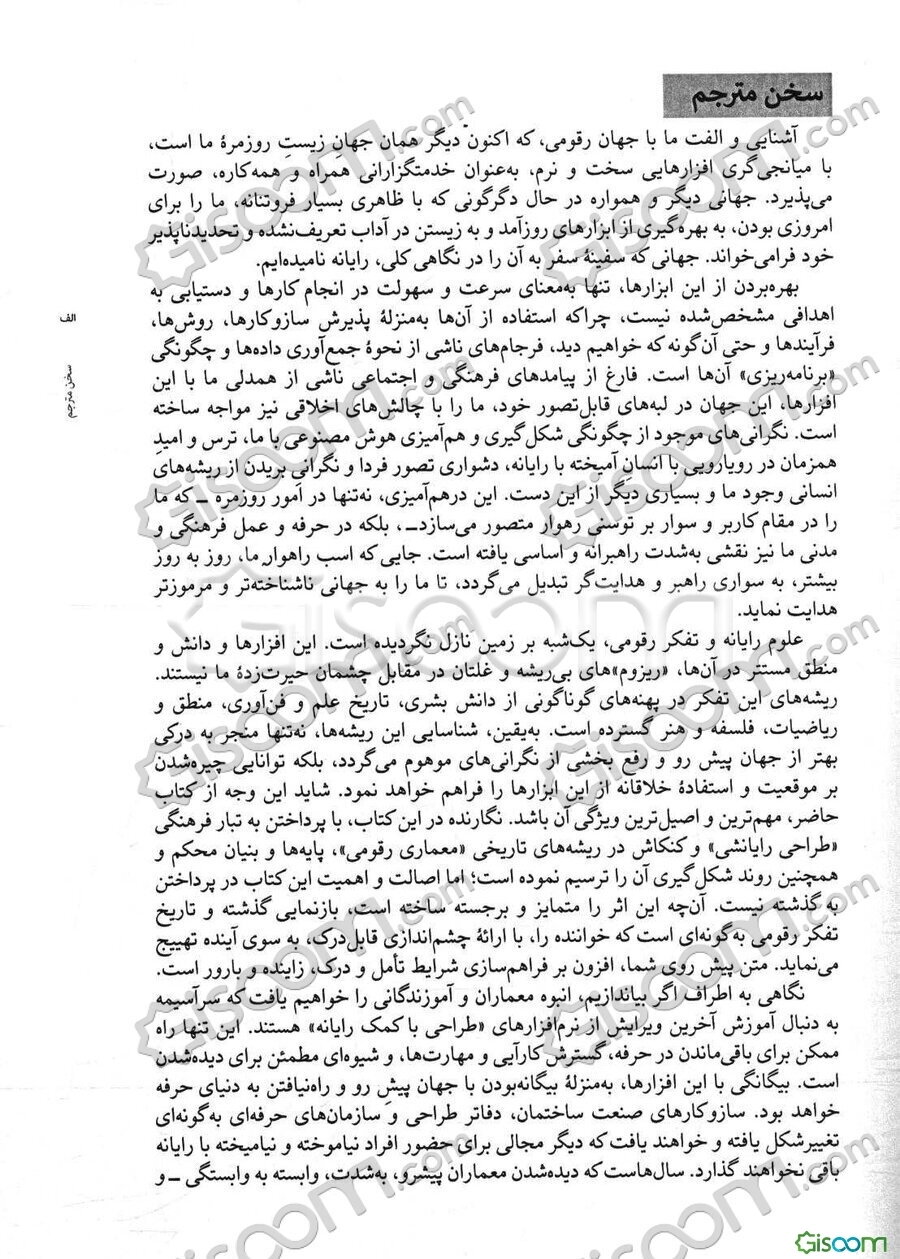 سخن مترجم
آشنایی و الفت ما با جهان رقومی، که اکنون دیگر همان جهان زیستِ روزمرهٔ ما است،
با میانجی‌گری افزارهایی سخت و نرم، به‌عنوان خدمتگزارانی همراه و همه‌کاره، صورت
می‌پذیرد. جهانی دیگر و همواره در حال دگرگونی که با ظاهری بسیار فروتنانه، ما را برای
امروزی بودن، به بهره‌گیری از ابزارهای روزآمد و به زیستن در آداب تعریف‌نشده و تحدیدناپذیر
خود فرامی‌خواند. جهانی که سفینهٔ سفر به آن را در نگاهی کلی، رایانه نامیده‌ایم.
بهره‌بردن از این ابزارها، تنها به‌معنای سرعت و سهولت در انجام کارها و دستیابی به
اهدافی مشخص‌شده نیست، چراکه استفاده از آن‌ها به‌منزلهٔ پذیرش سازوکارها، روش‌ها،
فرآیندها و حتی آن‌گونه که خواهیم دید، فرجام‌های ناشی از نحوهٔ جمع‌آوری داده‌ها و چگونگی
«برنامه‌ریزی» آن‌ها است. فارغ از پیامدهای فرهنگی و اجتماعی ناشی از همدلی ما با این
افزارها، این جهان در لبه‌های قابل‌تصور خود، ما را با چالش‌های اخلاقی نیز مواجه ساخته
است. نگرانی‌های موجود از چگونگی شکل‌گیری و هم‌آمیزی هوش مصنوعی با ما، ترس و امیدِ
همزمان در رویارویی با انسانِ آمیخته با رایانه، دشواری تصور فردا و نگرانیِ بریدن از ریشه‌های
انسانی وجود ما و بسیاری دیگر از این دست. این درهم‌آمیزی، نه‌تنها در امور روزمره ــ که ما
را در مقام کاربر و سوار بر توسنی رهوار متصور می‌سازدــ، بلکه در حرفه و عمل فرهنگی و
مدنی ما نیز نقشی به‌شدت راهبرانه و اساسی یافته است. جایی که اسب راهوار ما، روز به روز
بیشتر، به سواری راهبر و هدایت‌گر تبدیل می‌گردد، تا ما را به جهانی ناشناخته‌تر و مرموزتر
هدایت نماید.
علوم رایانه و تفکر رقومی، یک‌شبه بر زمین نازل نگردیده است. این افزارها و دانش و
منطق مستتر در آن‌ها، «ریزوم»های بی‌ریشه و غلتان در مقابل چشمان حیرت‌زدهٔ ما نیستند.
ریشه‌های این تفکر در پهنه‌های گوناگونی از دانش بشری، تاریخ علم و فن‌آوری، منطق و
ریاضیات، فلسفه و هنر گسترده است. به‌یقین، شناسایی این ریشه‌ها، نه‌تنها منجر به درکی
بهتر از جهان پیش رو و رفع بخشی از نگرانی‌های موهوم می‌گردد، بلکه توانایی چیره‌شدن
بر موقعیت و استفادهٔ خلاقانه از این ابزارها را فراهم خواهد نمود. شاید این وجه از کتاب
حاضر، مهم‌ترین و اصیل‌ترین ویژگی آن باشد. نگارنده در این کتاب، با پرداختن به تبار فرهنگی
«طراحی رایانشی» و کنکاش در ریشه‌های تاریخی «معماری رقومی»، پایه‌ها و بنیان محکم و
همچنین روند شکل‌گیری آن را ترسیم نموده است؛ اما اصالت و اهمیت این کتاب در پرداختن
به گذشته نیست. آن‌چه این اثر را متمایز و برجسته ساخته است، بازنمایی گذشته و تاریخ
تفکر رقومی به‌گونه‌ای است که خواننده را، با ارائهٔ چشم‌اندازی قابل‌درک، به سوی آینده تهییج
می‌نماید. متن پیش روی شما، افزون بر فراهم‌سازی شرایط تأمل و درک، زاینده و بارور است.
نگاهی به اطراف اگر بیاندازیم، انبوه معماران و آموزندگانی را خواهیم یافت که سرآسیمه
به دنبال آموزش آخرین ویرایش از نرم‌افزارهای «طراحی با کمک رایانه» هستند. این تنها راه
ممکن برای باقی‌ماندن در حرفه، گسترش کارآیی و مهارت‌ها، و شیوه‌ای مطمئن برای دیده‌شدن
است. بیگانگی با این افزارها، به‌منزلهٔ بیگانه‌بودن با جهان پیشِ رو و راه‌نیافتن به دنیای حرفه
خواهد بود. سازوکارهای صنعت ساختمان، دفاتر طراحی و سازمان‌های حرفه‌ای به‌گونه‌ای
تغییرشکل یافته و خواهند یافت که دیگر مجالی برای حضور افراد نیاموخته و نیامیخته با رایانه
باقی نخواهند گذارد. سال‌هاست که دیده‌شدن معماران پیشرو، به‌شدت، وابسته به وابستگی ــ و
الف
سخن مترجم
Gisoom.com
Gisoom.com
Gisoom.com
Gisoom.com
Gisoom.com
Gisoom.com
Gisoom.com
Gisoom.com
Gisoom.com
Gisoom.com
Gisoom
Gisoom